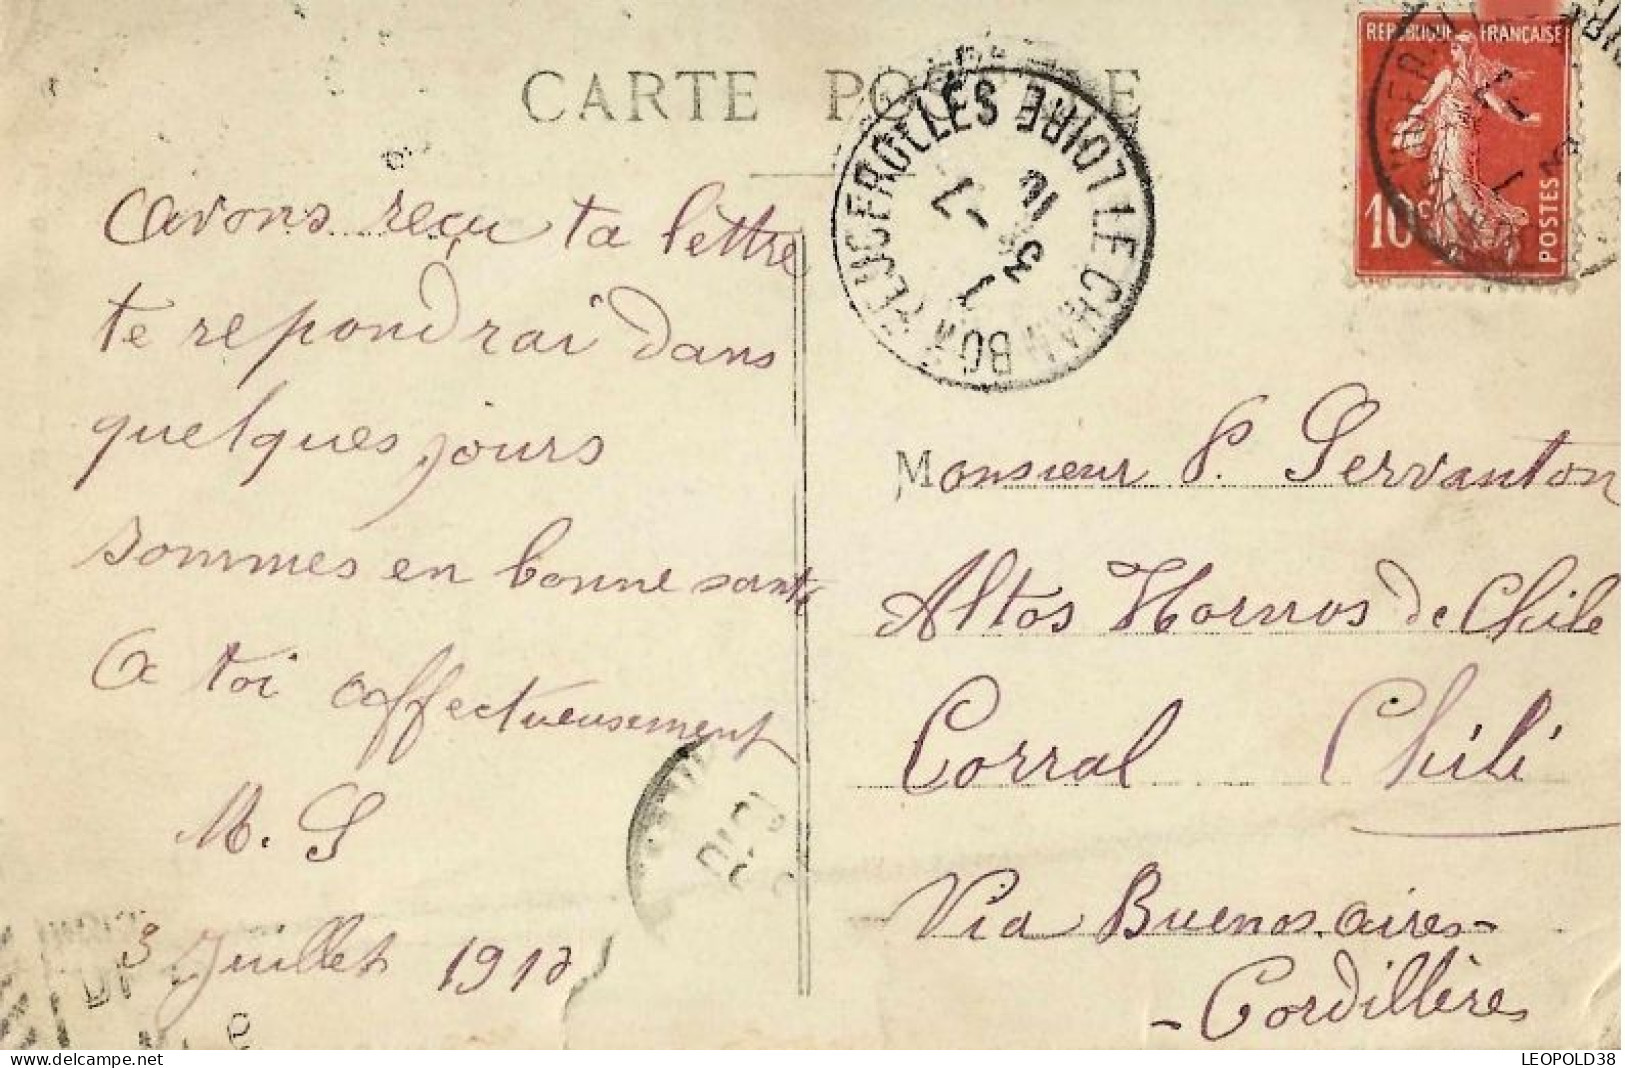 CARTE POSTALE
REPUBLIQUE FRANÇAISE
10c
POSTES
LE CHAMBON FEUGEROLLES LOIRE
Avons reçu ta lettre
te repondrai dans
quelques jours
sommes en bonne santé
A toi affectueusement
M. S
3 Juillet 191
Monsieur P. Servanton
Altos Hornos de Chile
Corral Chili
Via Buenos aires-
- Cordillère
LEOPOLD38